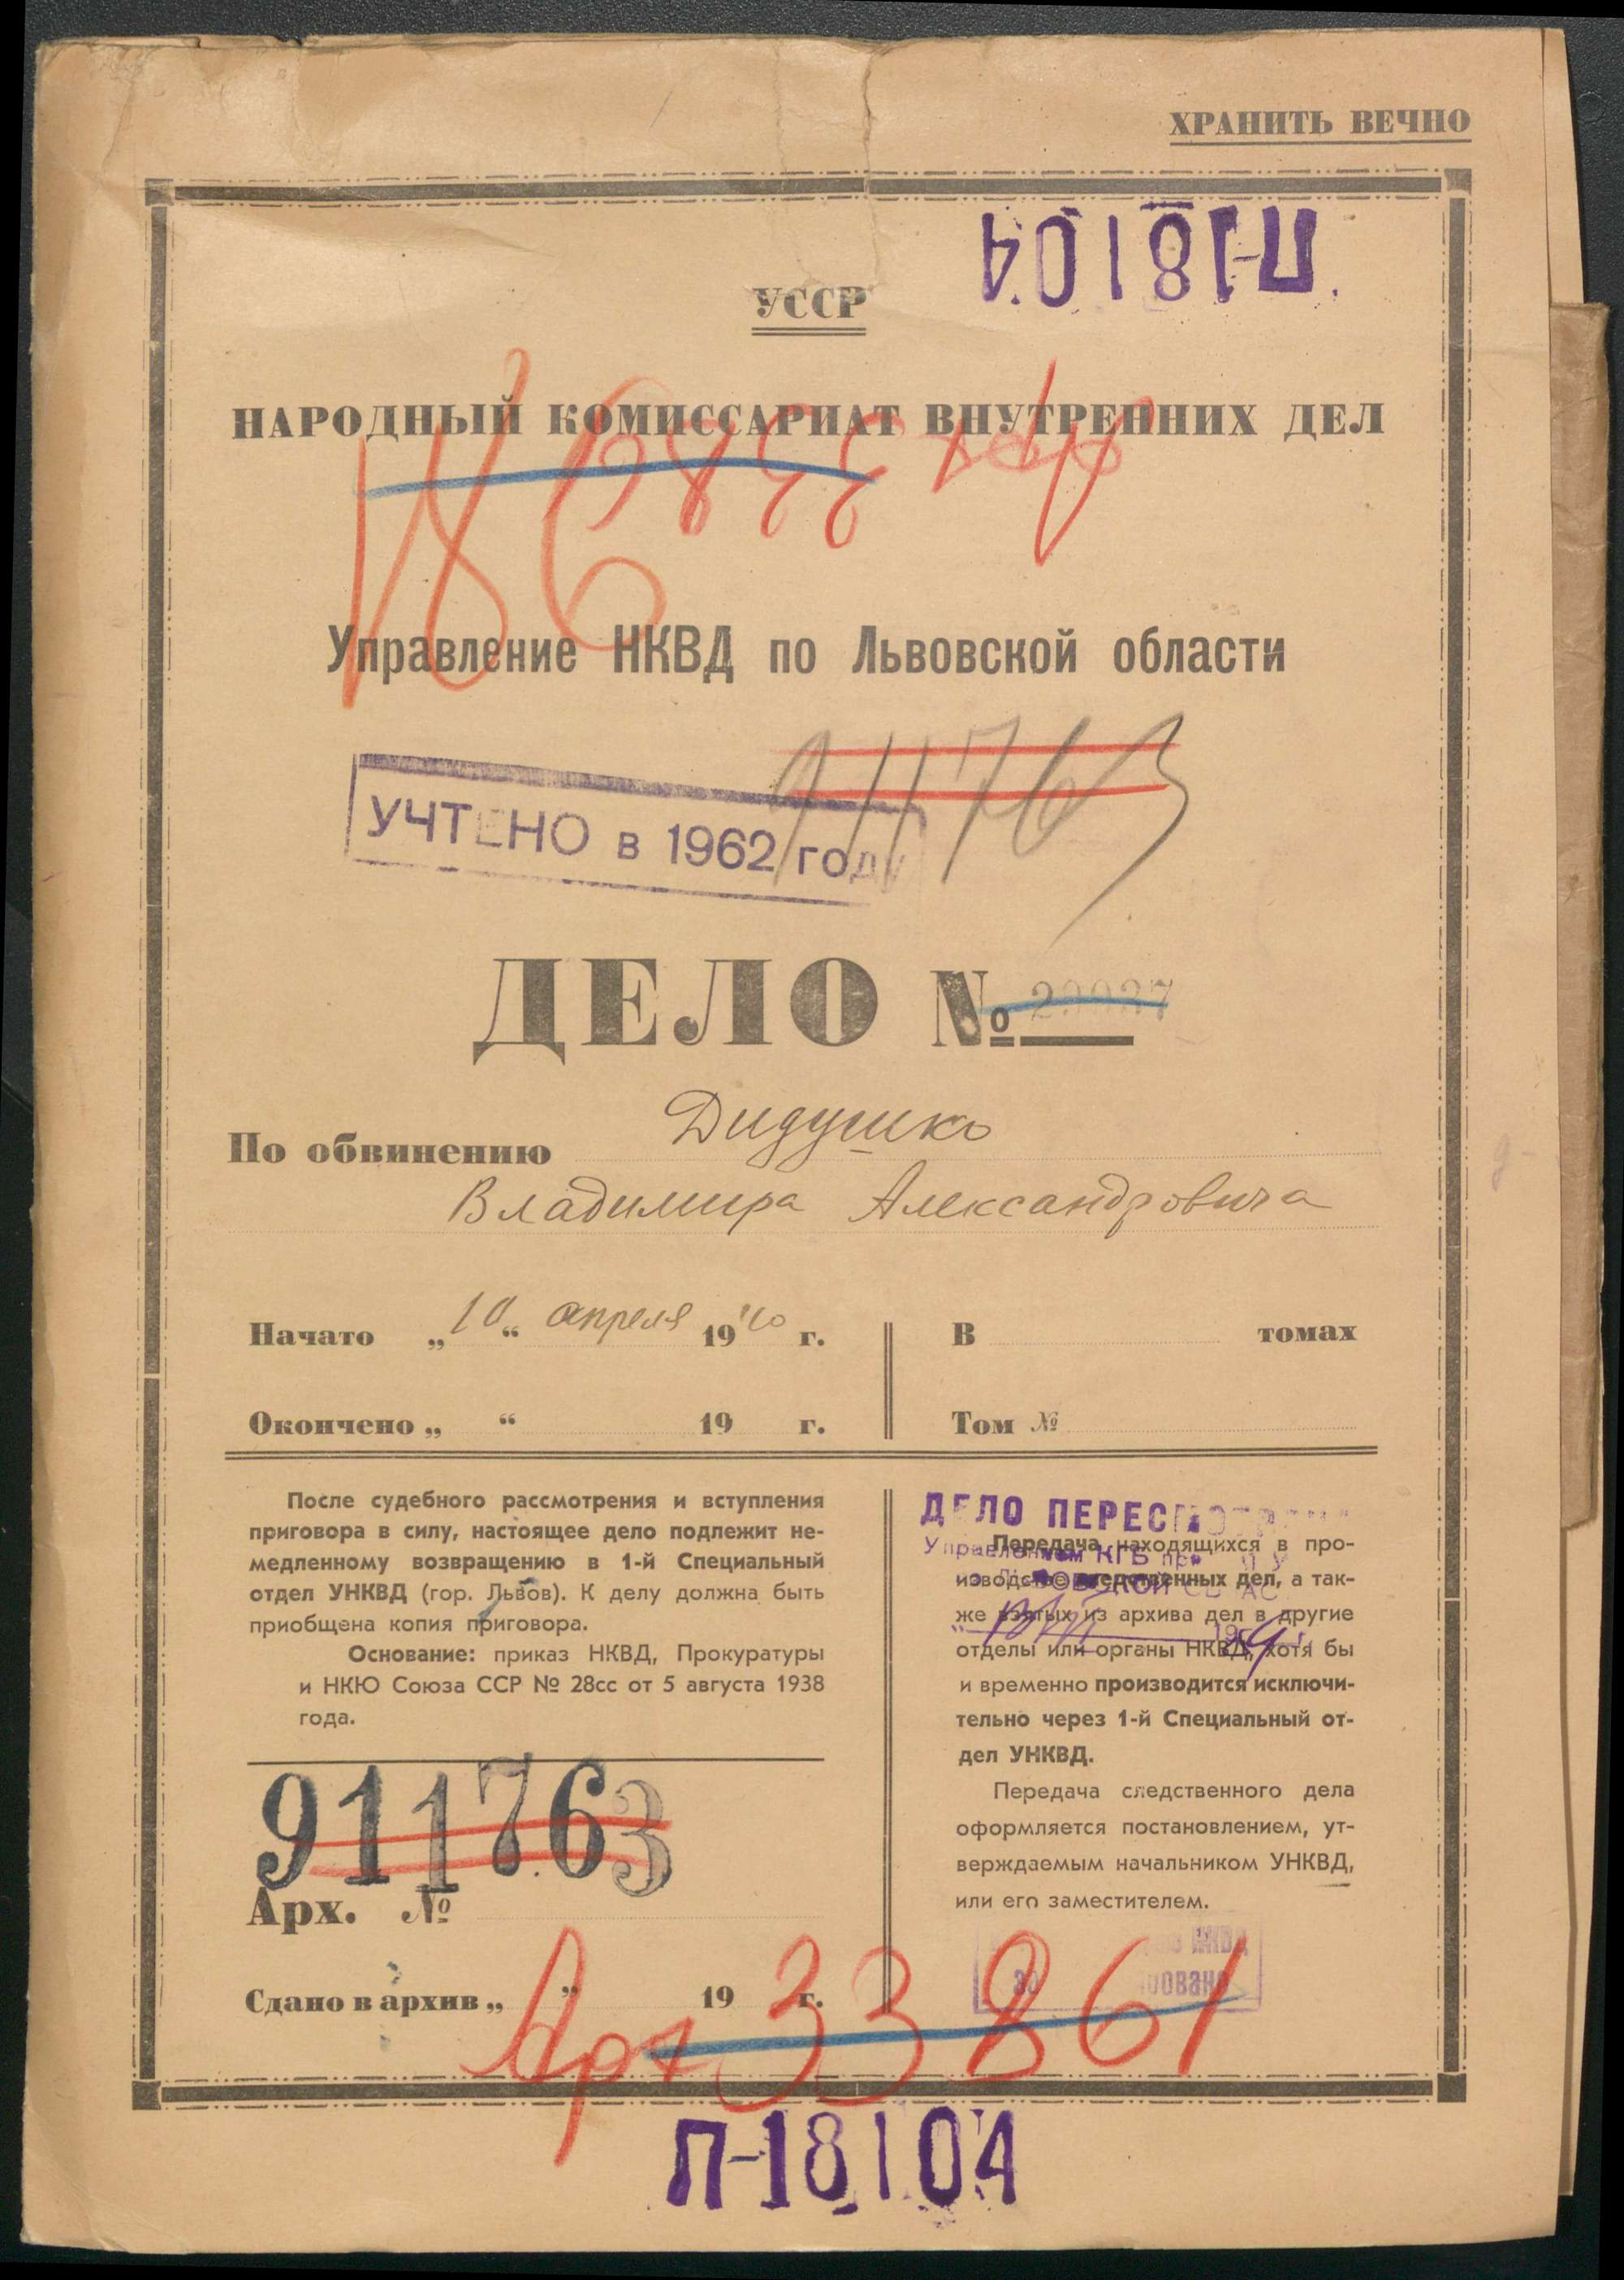 ХРАНИТЬ ВЕЧНО
П-18104
УССР
НАРОДНЫЙ КОМИССАРИАТ ВНУТРЕННИХ ДЕЛ
Арх 33861
Управление НКВД по Львовской области
911763
УЧТЕНО в 1962 году
ДЕЛО № 29937
По обвинению Дидушко
Владимира Александровича
Начато „10“ апреля 1940 г.
В томах
Окончено „ “ 19 г.
Том №
После судебного рассмотрения и вступления
приговора в силу, настоящее дело подлежит не-
медленному возвращению в 1-й Специальный
отдел УНКВД (гор. Львов). К делу должна быть
приобщена копия приговора.
Основание: приказ НКВД, Прокуратуры
и НКЮ Союза ССР № 28сс от 5 августа 1938
года.
911763
Арх. №
Сдано в архив „ ” 19 г.
ДЕЛО ПЕРЕСМОТРЕНО
Управлением КГБ при
Передача находящихся в про-
изводстве следственных дел, а так-
же взятых из архива дел в другие
отделы или органы НКВД, хотя бы
и временно производится исключи-
тельно через 1-й Специальный от-
дел УНКВД.
Передача следственного дела
оформляется постановлением, ут-
верждаемым начальником УНКВД,
или его заместителем.
Арх 33861
П-18104